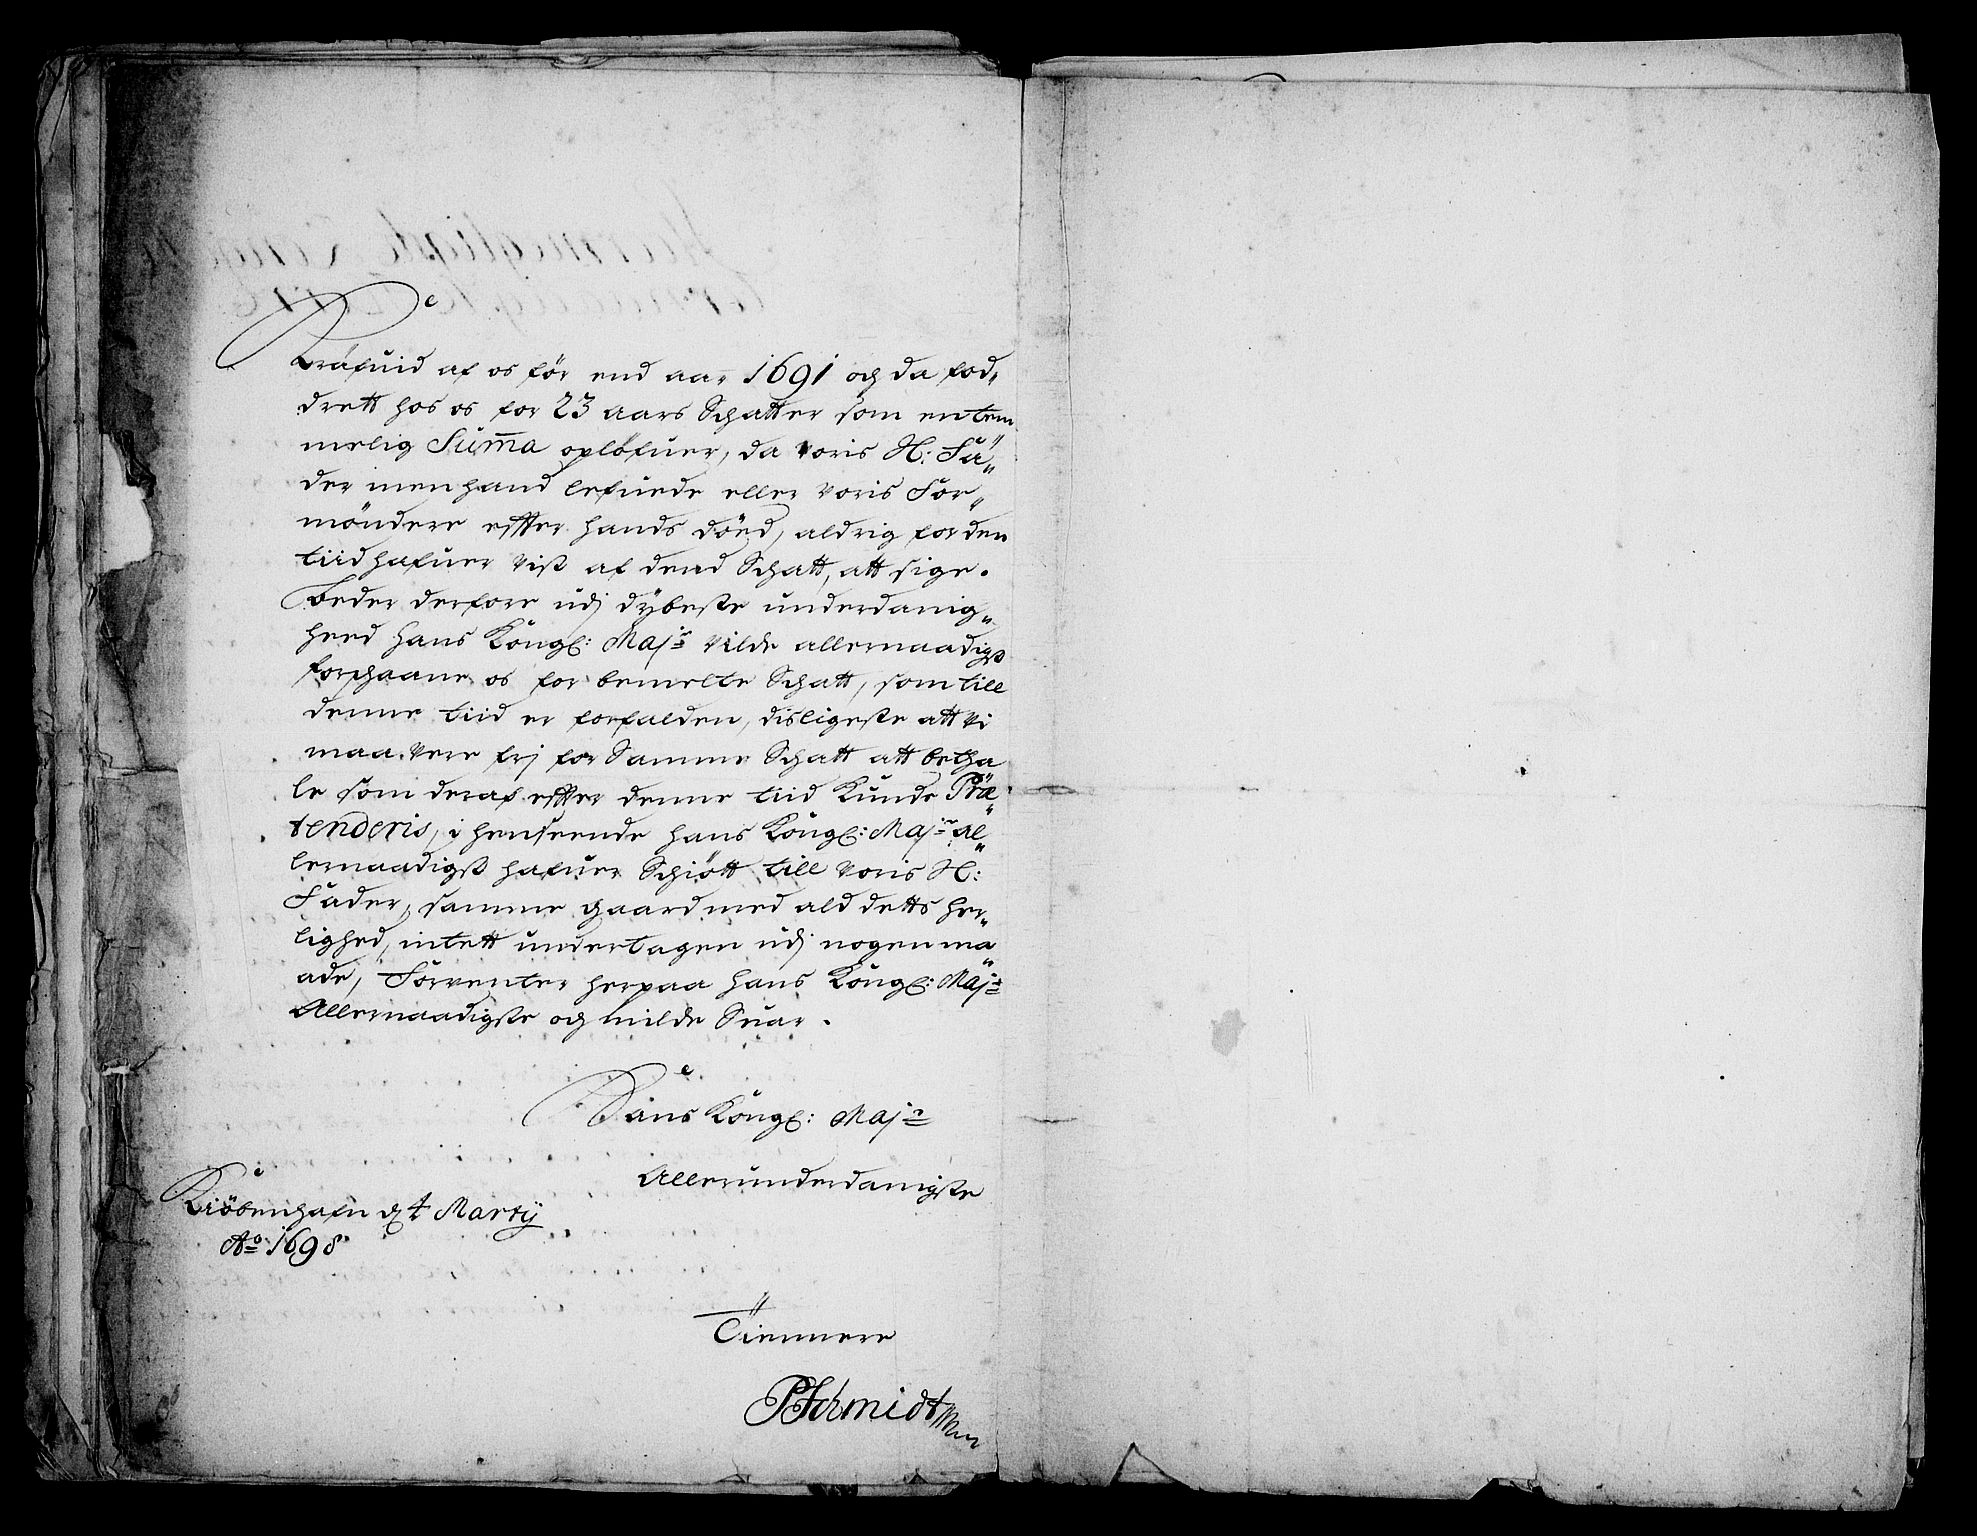 Kräfuid af os för end aar 1691 og da fod„
drett hos os for 23 aars Schatter som en tem
melig Suma oplöfuer, da voris H: Fä„
der men hand lefuede eller voris For„
möndere effter hands död, aldrig for den
tiid hafuer vist af dend Schatt, att sige.
Beder derfore udj dÿbeste underdanig„
heed hans Köngl: Maj:ts vilde allernaadigst
forschaane os for bemelte Schatt, som till
denne tiid er forfalden, disligeste att vi
maa vere frj for Samme Schatt att betha
le som deraf effter denne tiid Kunde Præ„
tenderis, i henseende hans Köngl: Maj:t al„
lernaadigst hafuer Schiött till voris H:
Fader, samme gaard med ald detts her„
lighed, intett undertagen udj nogen ma„
ade, Forventer herpaa hans Köngl: Maj:ts
Allernaadigste og milde Suar.
Hans Köngl: Maj:ts
Allerunderdanigste
Kiöbenhafn d 4 Martij
Ao 1698
Tiennere
PSchmidt